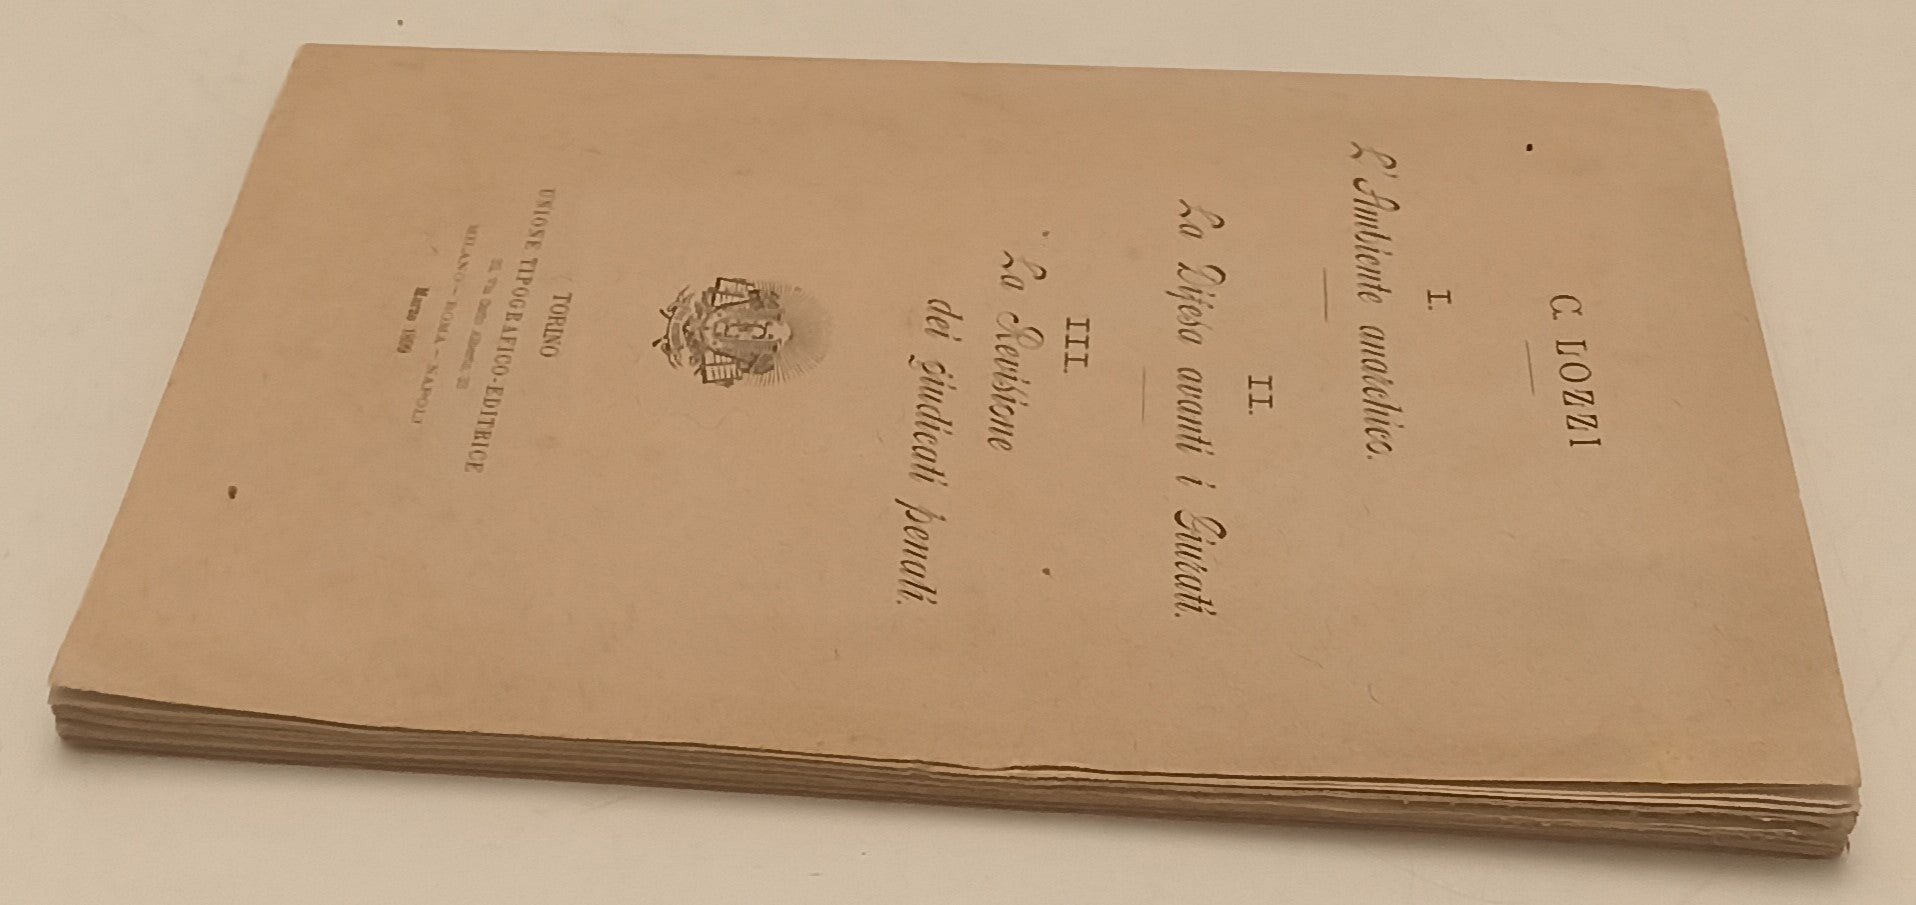 C. LOZZI
I.
L'Ambiente anarchico.
II.
La Difesa avanti i Giurati.
III.
La Revisione
dei giudicati penali.
TORINO
UNIONE TIPOGRAFICO-EDITRICE
MILANO - ROMA - NAPOLI
Marzo 1899